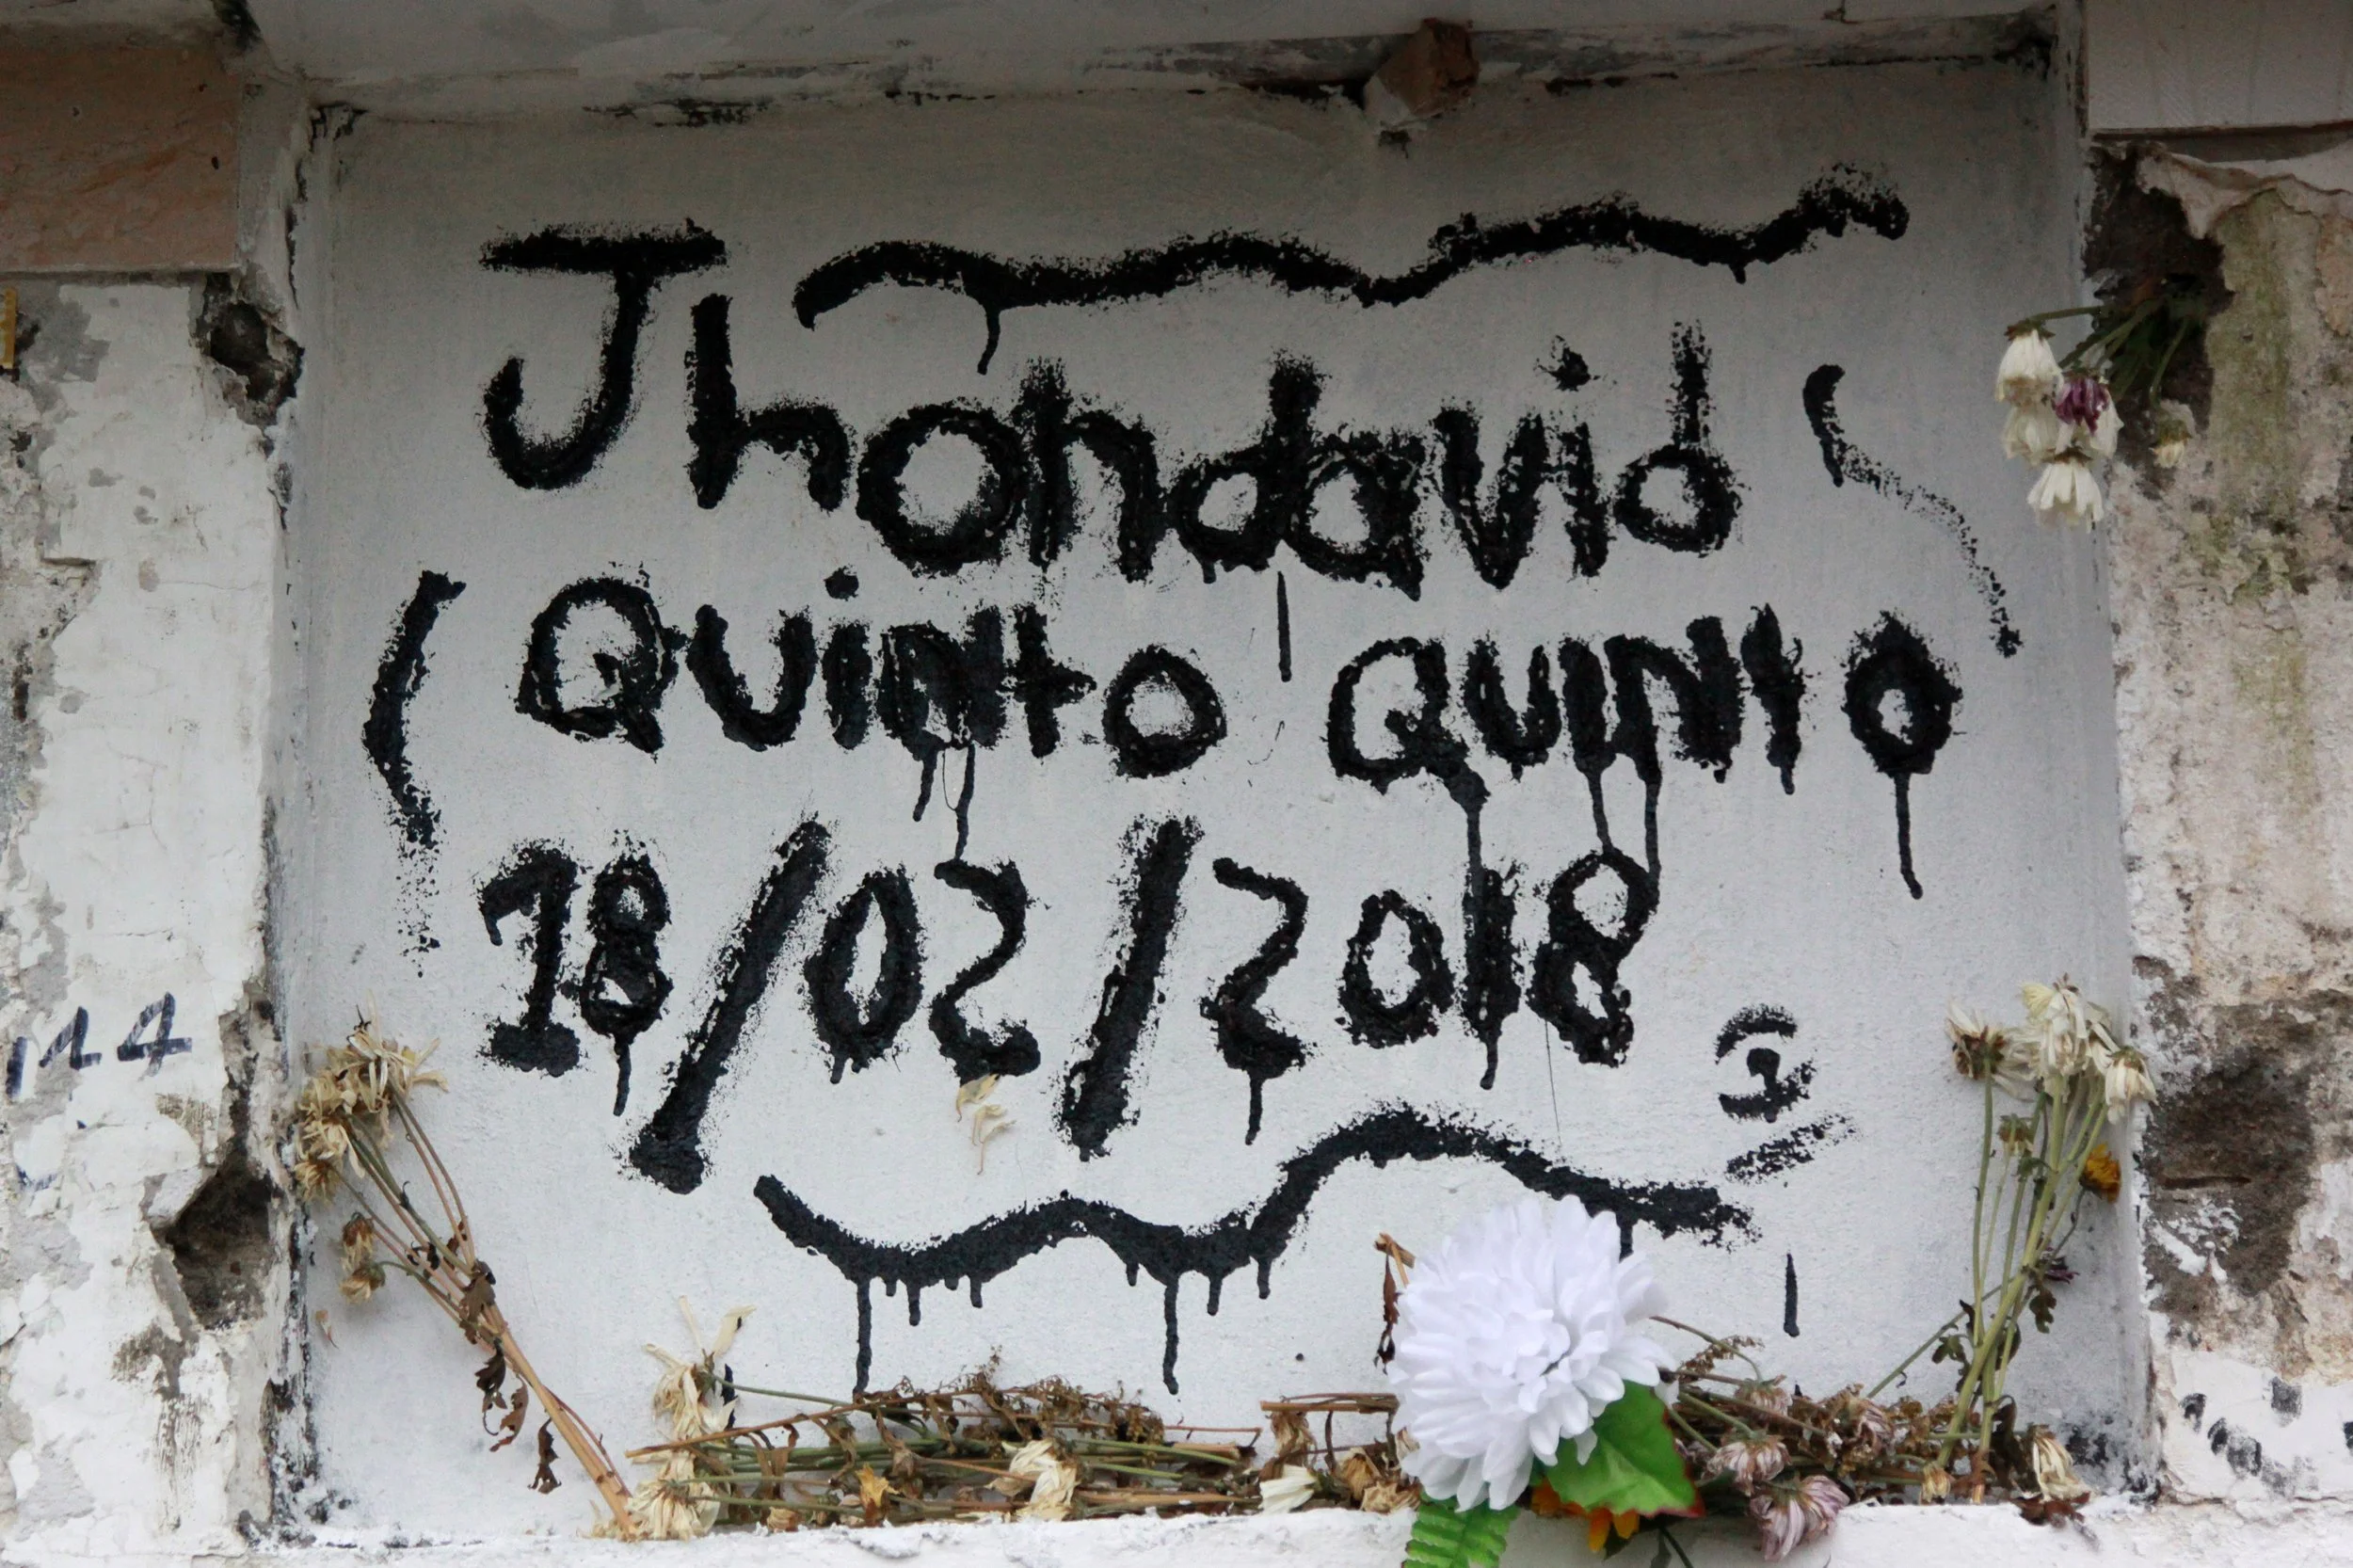 Jhondavid
Quinto Quinto
18/02/2018